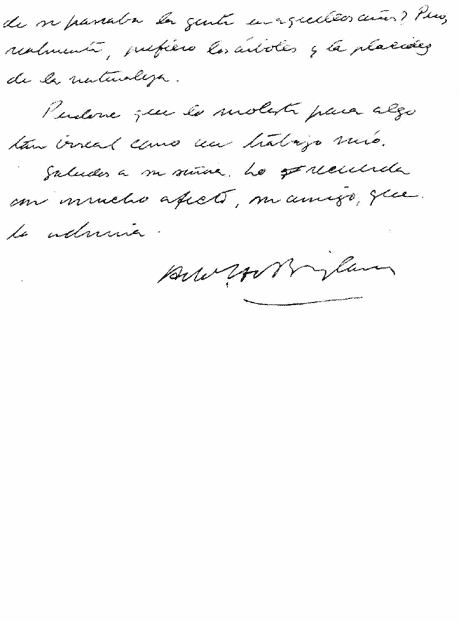 de se pasaba la gente en aquellos años? Pero,
realmente, prefiero los árboles y la placidez
de la naturaleza.
Perdone que lo moleste para algo
tan irreal como un trabajo mío.
Saludos a su señora. Lo recuerda
con mucho afecto, su amigo, que
lo admira.